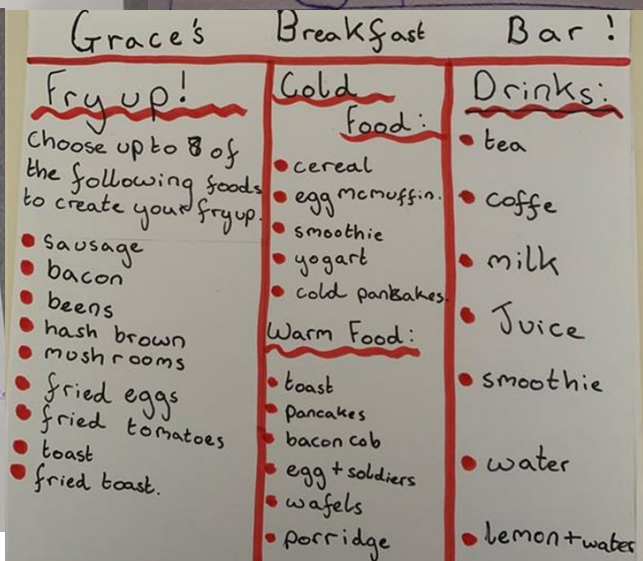 Grace's Breakfast Bar !
Fry up!
Choose up to 8 of
the following foods
to create your fryup.
sausage
bacon
beens
hash brown
mushrooms
fried eggs
fried tomatoes
toast
fried toast.
Cold
Food:
cereal
egg mcmuffin.
smoothie
yogart
cold pankakes.
Warm Food:
toast
pancakes
bacon cob
egg + soldiers
wafels
porridge
Drinks:
tea
coffe
milk
Juice
smoothie
water
lemon + water